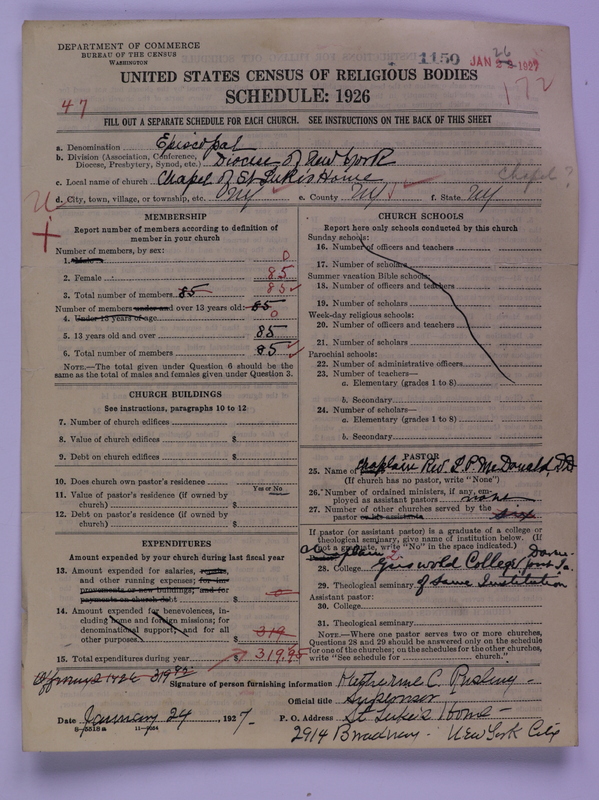 DEPARTMENT OF COMMERCE
BUREAU OF THE CENSUS
WASHINGTON
1150
JAN 26 1927
UNITED STATES CENSUS OF RELIGIOUS BODIES
SCHEDULE: 1926
172
47
FILL OUT A SEPARATE SCHEDULE FOR EACH CHURCH. SEE INSTRUCTIONS ON THE BACK OF THIS SHEET
a. Denomination Episcopal
b. Division (Association, Conference, Diocese, Presbytery, Synod, etc.) Diocese of New York
c. Local name of church Chapel of St Luke's Home
Chapel?
d. City, town, village, or township, etc. NY e. County NY f. State NY
MEMBERSHIP
Report number of members according to definition of
member in your church
Number of members, by sex:
1. Male 0
2. Female 85
3. Total number of members 85 85
Number of members under and over 13 years old: 85
4. Under 13 years of age 0
5. 13 years old and over 85
6. Total number of members 85
NOTE.—The total given under Question 6 should be
same as the total of males and females given under Question 3.
CHURCH BUILDINGS
See instructions, paragraphs 10 to 12
7. Number of church edifices
8. Value of church edifices $
9. Debt on church edifices $
10. Does church own pastor's residence
Yes or No
11. Value of pastor's residence (if owned by
church) $
12. Debt on pastor's residence (if owned by
church) $
EXPENDITURES
Amount expended by your church during last fiscal year
13. Amount expended for salaries, repairs,
and other running expenses; for im-
provements or new buildings; and for
payments on church debt $
14. Amount expended for benevolences, in-
cluding home and foreign missions; for
denominational support; and for all
other purposes $ 319
15. Total expenditures during year $ 319.95
CHURCH SCHOOLS
Report here only schools conducted by this church
Sunday schools:
16. Number of officers and teachers
17. Number of scholars
Summer vacation Bible schools:
18. Number of officers and teachers
19. Number of scholars
Week-day religious schools:
20. Number of officers and teachers
21. Number of scholars
Parochial schools:
22. Number of administrative officers
23. Number of teachers—
a. Elementary (grades 1 to 8)
b. Secondary
24. Number of scholars—
a. Elementary (grades 1 to 8)
b. Secondary
PASTOR
25. Name of Chaplain Rev. McDonald, DD
(If church has no pastor, write "None")
26. Number of ordained ministers, if any, em-
ployed as assistant pastors none
27. Number of other churches served by the
pastor or his assistants
If pastor (or assistant pastor) is a graduate of a college or
theological seminary, give name of institution below. (If
not a graduate, write "No" in the space indicated.)
Chaplain
28. College Griswold College, Davenport Ia.
29. Theological seminary of same Institution
Assistant pastor:
30. College
31. Theological seminary
NOTE.—Where one pastor serves two or more churches,
Questions 28 and 29 should be answered only on the schedule
for one of the churches; on the schedules for the other churches,
write "See schedule for church."
1926 319
Signature of person furnishing information Katherine C.
Official title
Date January 24, 1927. P. O. Address St. Luke's Home—
8-5518a 11-9084
2914 Broadway. New York City